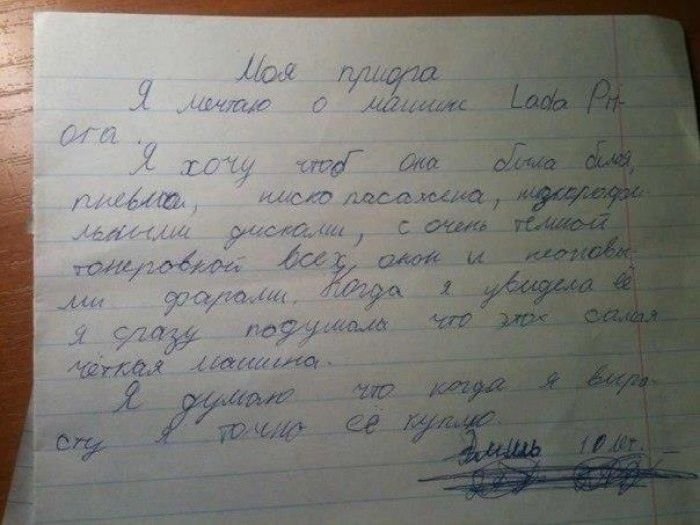 Моя приора
Я мечтаю о машине Lada Pri-
ora.
Я хочу чтоб она была белая,
пневмой, ниско пасажена, низкопрофи-
льными дисками, с очень тёмной
тонеровкой всех окон и неоновы-
ми фарами. Когда я увидела её
я сразу подумала что этох самая
чёткая машина.
Я думаю что когда я выра-
сту я точно её куплю.
Эмиль 10 лет.